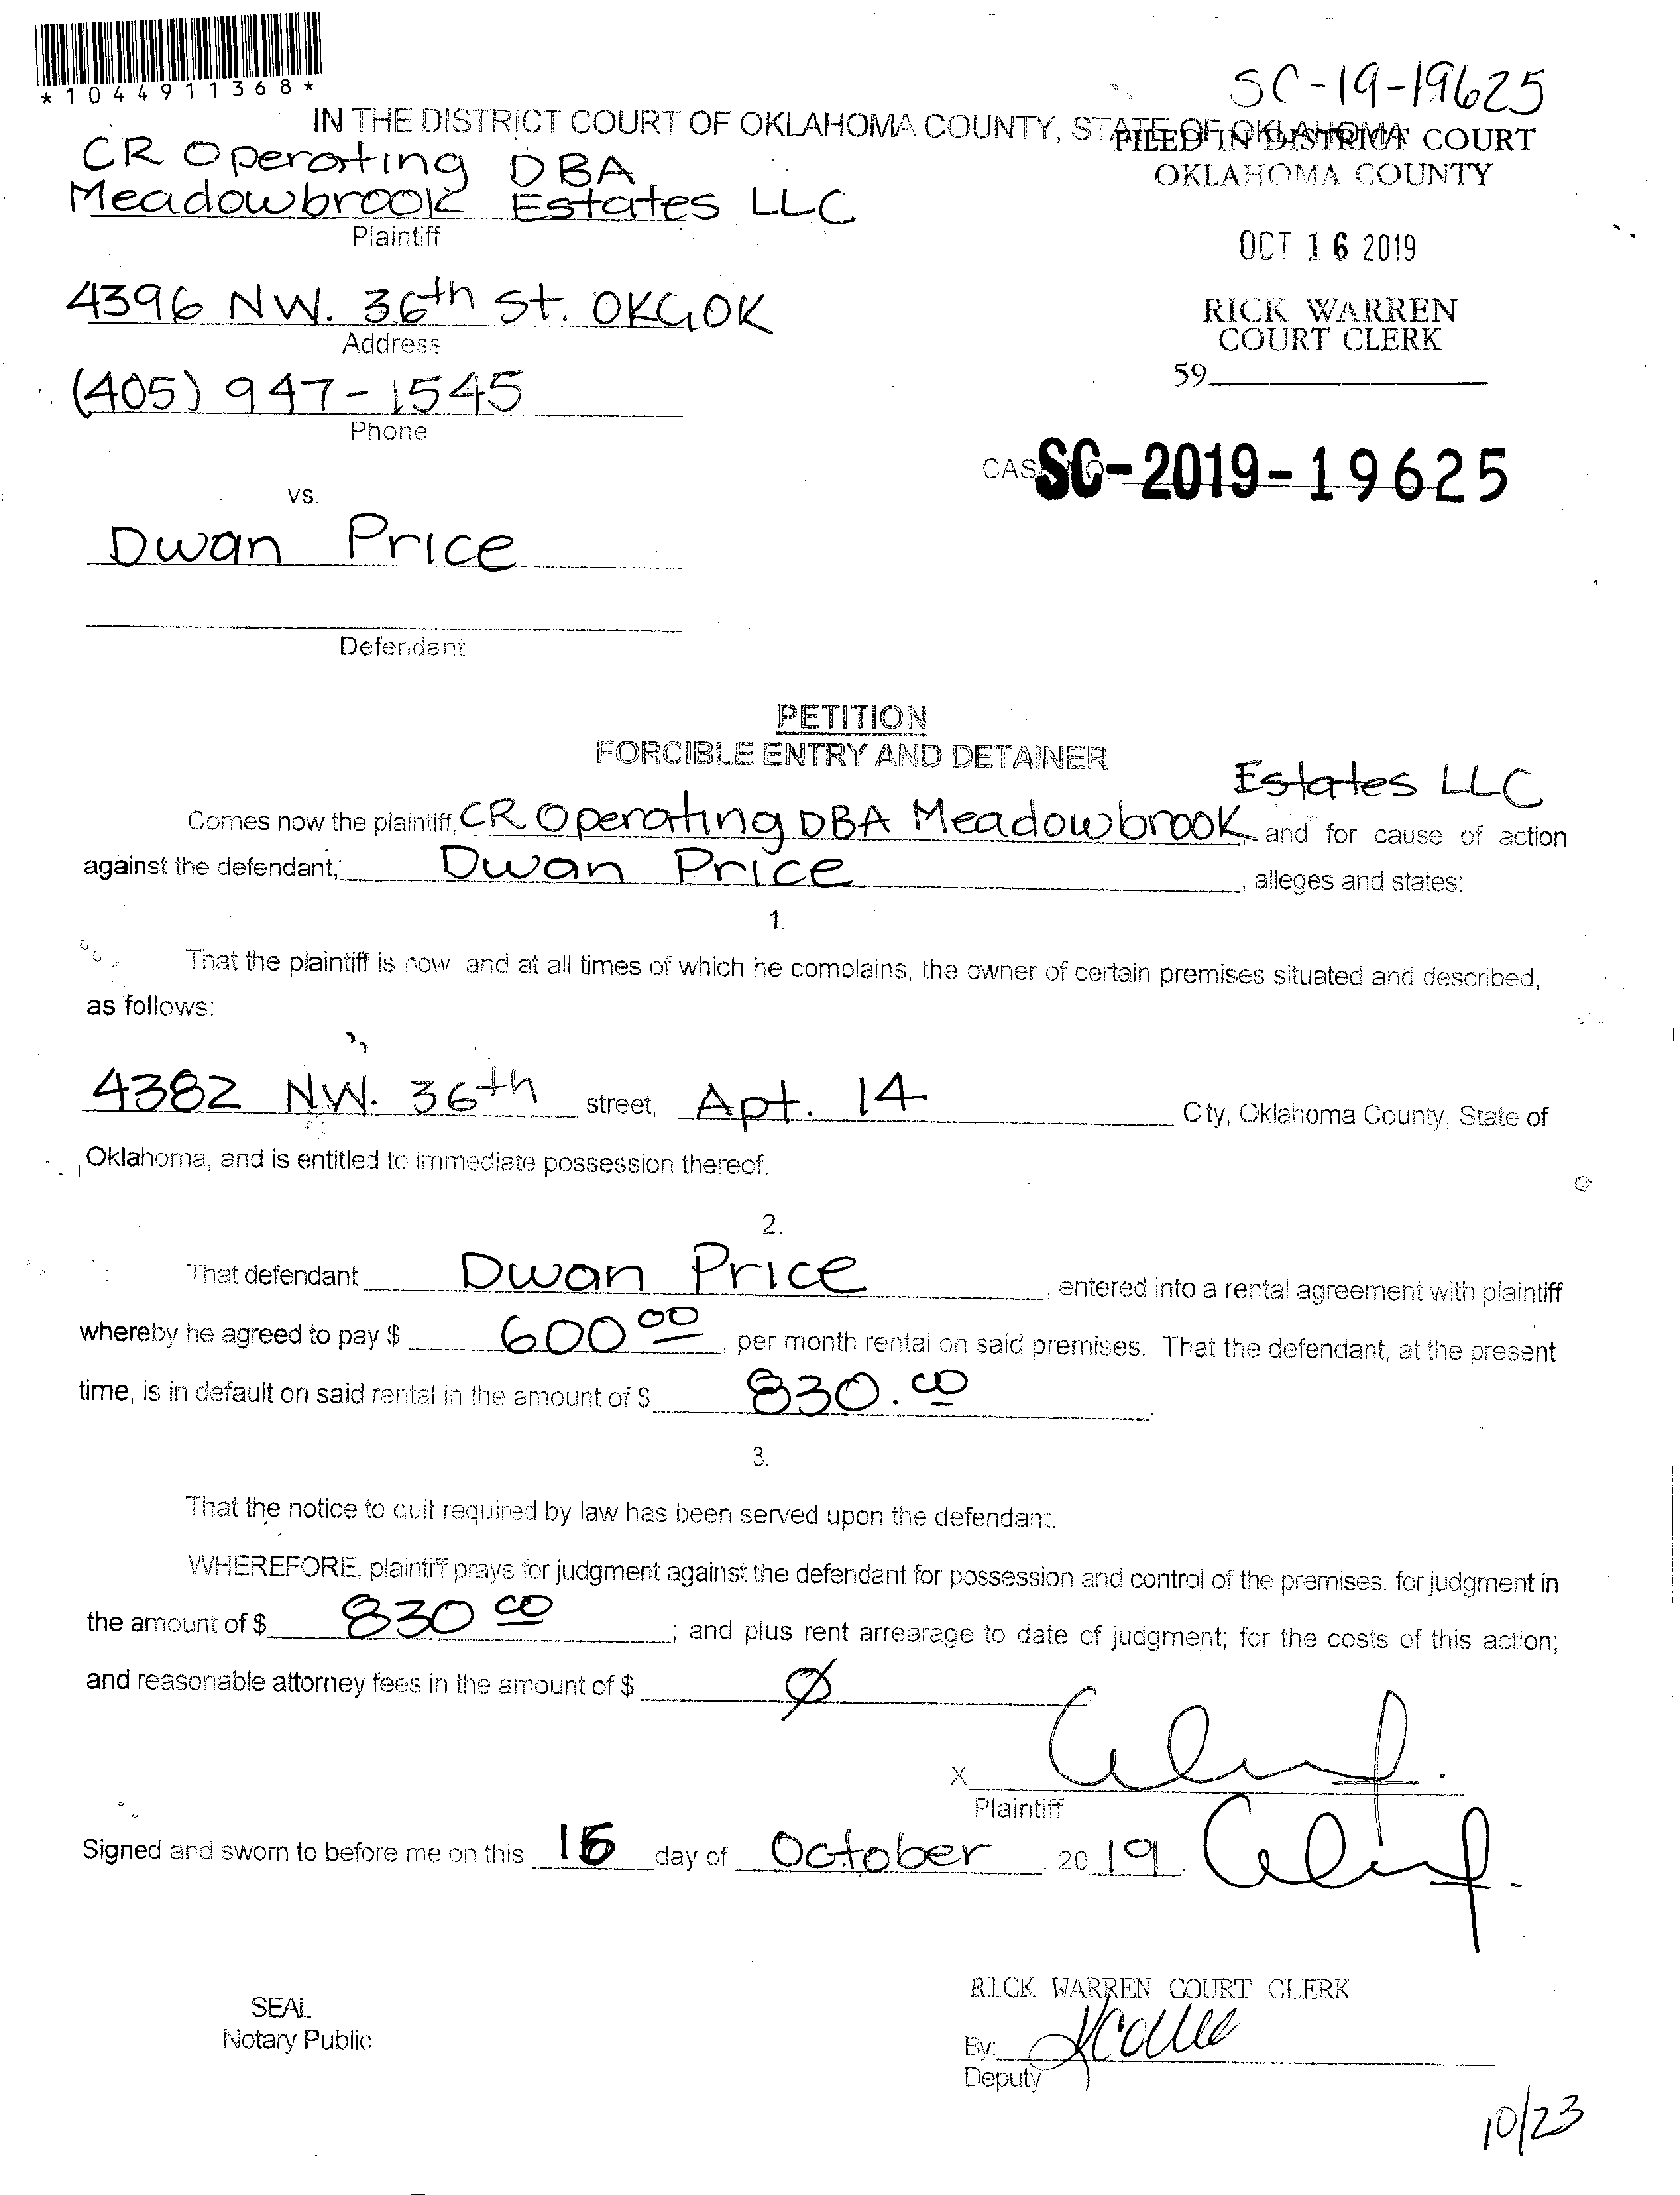 *1044911368*
SC-19-19625
IN THE DISTRICT COURT OF OKLAHOMA COUNTY, STATE OF OKLAHOMA
FILED IN DISTRICT COURT
OKLAHOMA COUNTY
CR Operating DBA
Meadowbrook Estates LLC
Plaintiff
OCT 16 2019
4396 NW. 36th St. OKC, OK
Address
RICK WARREN
COURT CLERK
59
(405) 947-1545
Phone
CASE NO. SC-2019-19625
vs.
Dwan Price
Defendant
PETITION
FORCIBLE ENTRY AND DETAINER
Estates LLC
Comes now the plaintiff, CR Operating DBA Meadowbrook, and for cause of action
against the defendant, Dwan Price, alleges and states:
1.
That the plaintiff is now and at all times of which he complains, the owner of certain premises situated and described,
as follows:
4382 NW. 36th street, Apt. 14 City, Oklahoma County, State of
Oklahoma, and is entitled to immediate possession thereof.
2.
That defendant Dwan Price, entered into a rental agreement with plaintiff
whereby he agreed to pay $ 600 00, per month rental on said premises. That the defendant, at the present
time, is in default on said rental in the amount of $ 830.00.
3.
That the notice to quit required by law has been served upon the defendant.
WHEREFORE, plaintiff prays for judgment against the defendant for possession and control of the premises, for judgment in
the amount of $ 830 00; and plus rent arrearage to date of judgment; for the costs of this action;
and reasonable attorney fees in the amount of $ Ø
X
Plaintiff
Signed and sworn to before me on this 16 day of October 2019.
RICK WARREN COURT CLERK
SEAL
Notary Public
By:
Deputy
10/23